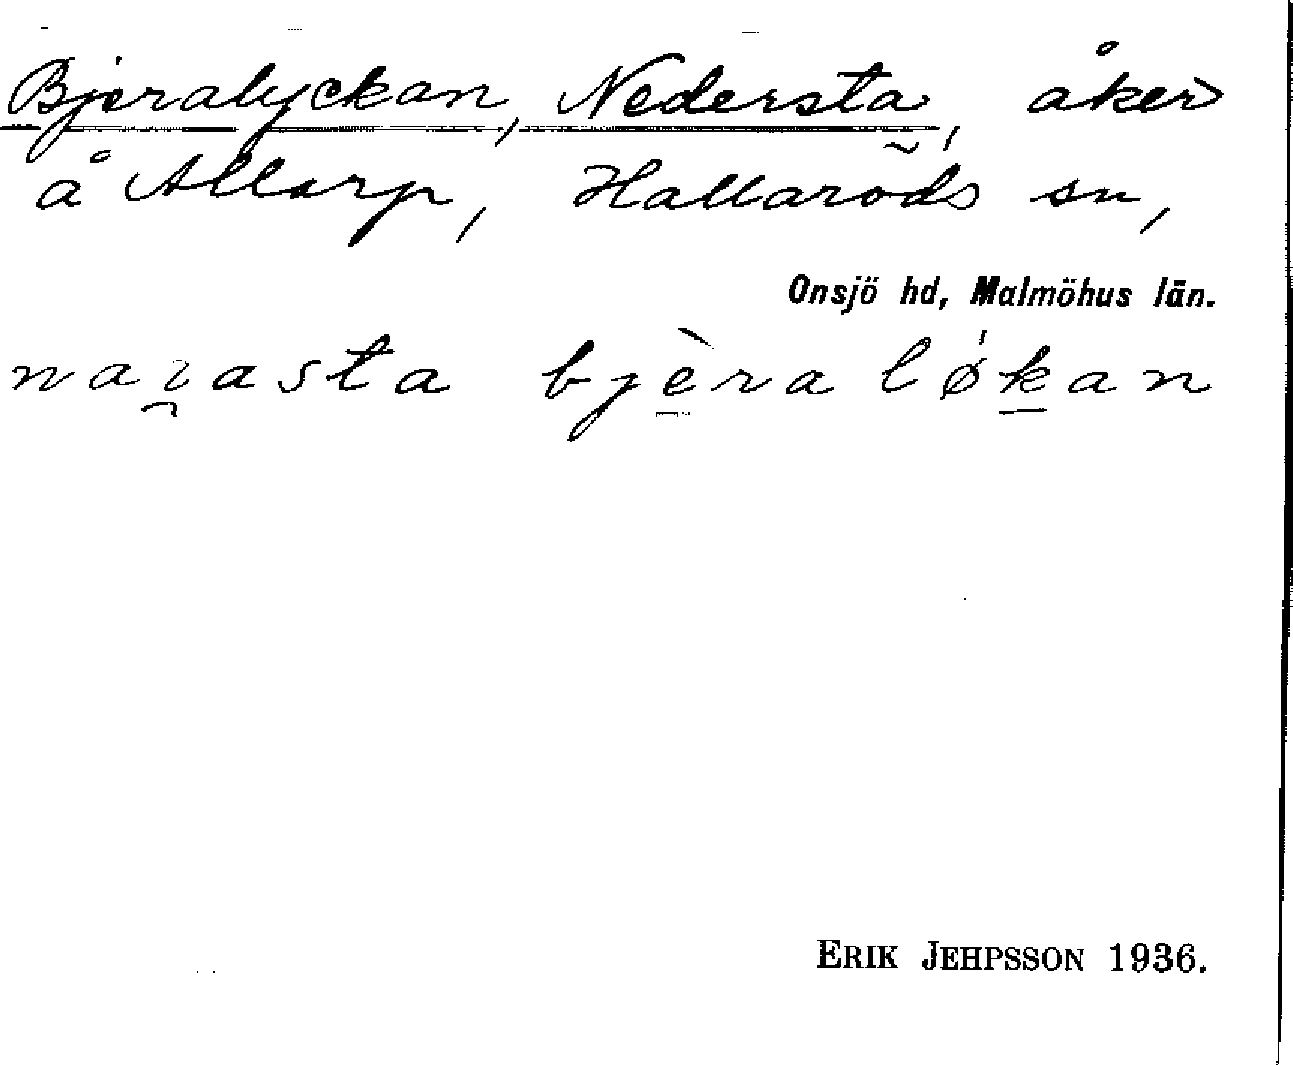 Bjeralyckan, Nedersta, åker
å Allarp, Hallaröds sn,
Onsjö hd, Malmöhus län.
narasta bjèra løkan
ERIK JEHPSSON 1936.